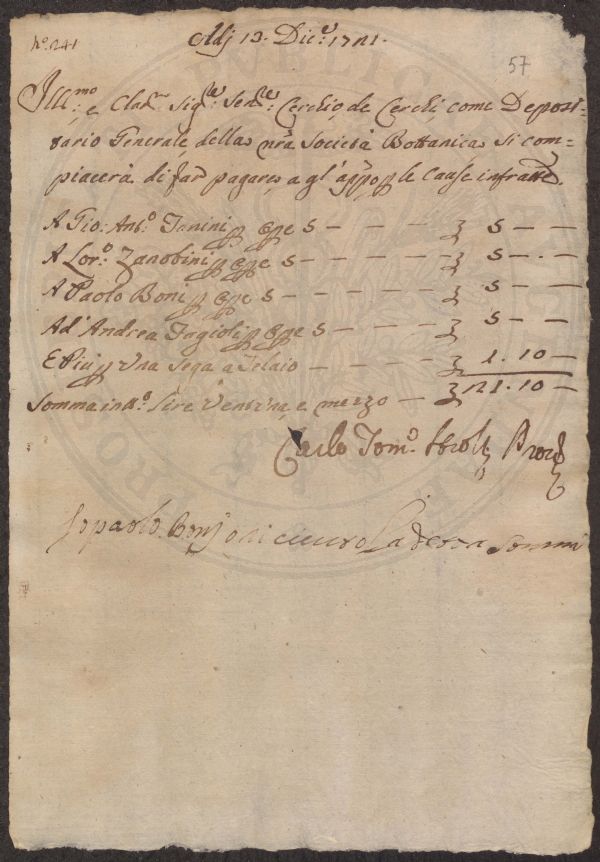 nº. 241
Adj 13. Dicᵉ: 1721.
57
Illᵐᵒ: e Clarᵐᵒ Sigʳᵉ: Senʳᵉ: Cerchio, de Cerchi, come Deposi-
tario Generale, della nra Società Bottanica, si com-
piacerà di far pagare, a gl' appᵒ p le cause infratte.
A Gio: Antº: Tanini p Opᵉ 5 - - - - } 5 - -
A Lorº: Zanobini p Opᵉ 5 - - - - - } 5 - . -
A Paolo Boni p Opᵉ 5 - - - - - } 5 - -
Ad' Andrea Fagioli p Opᵉ 5 - - - } 5 - -
E Più p Una Sega a Telaio - - - - } 1. 10 -
Somma intº: Lire Ventuna, e mezzo - } 21. 10 -
Carlo Tomº:
Io paolo Bonj o riceuto La detta Somma
PVBLIC